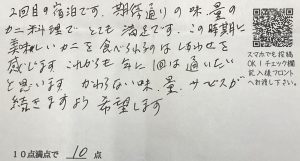 2回目の宿泊です。期待通りの味、量の
カニ料理でとても満足です。この時期に
美味しいカニを食べられるのはしあわせを
感じます これからも年に1回は通いたい
と思います かわらない味、量、サービスが
続きますよう希望します
スマホでも投稿
OK!チェック欄
記入後フロント
へお渡し下さい。
10点満点で 10 点